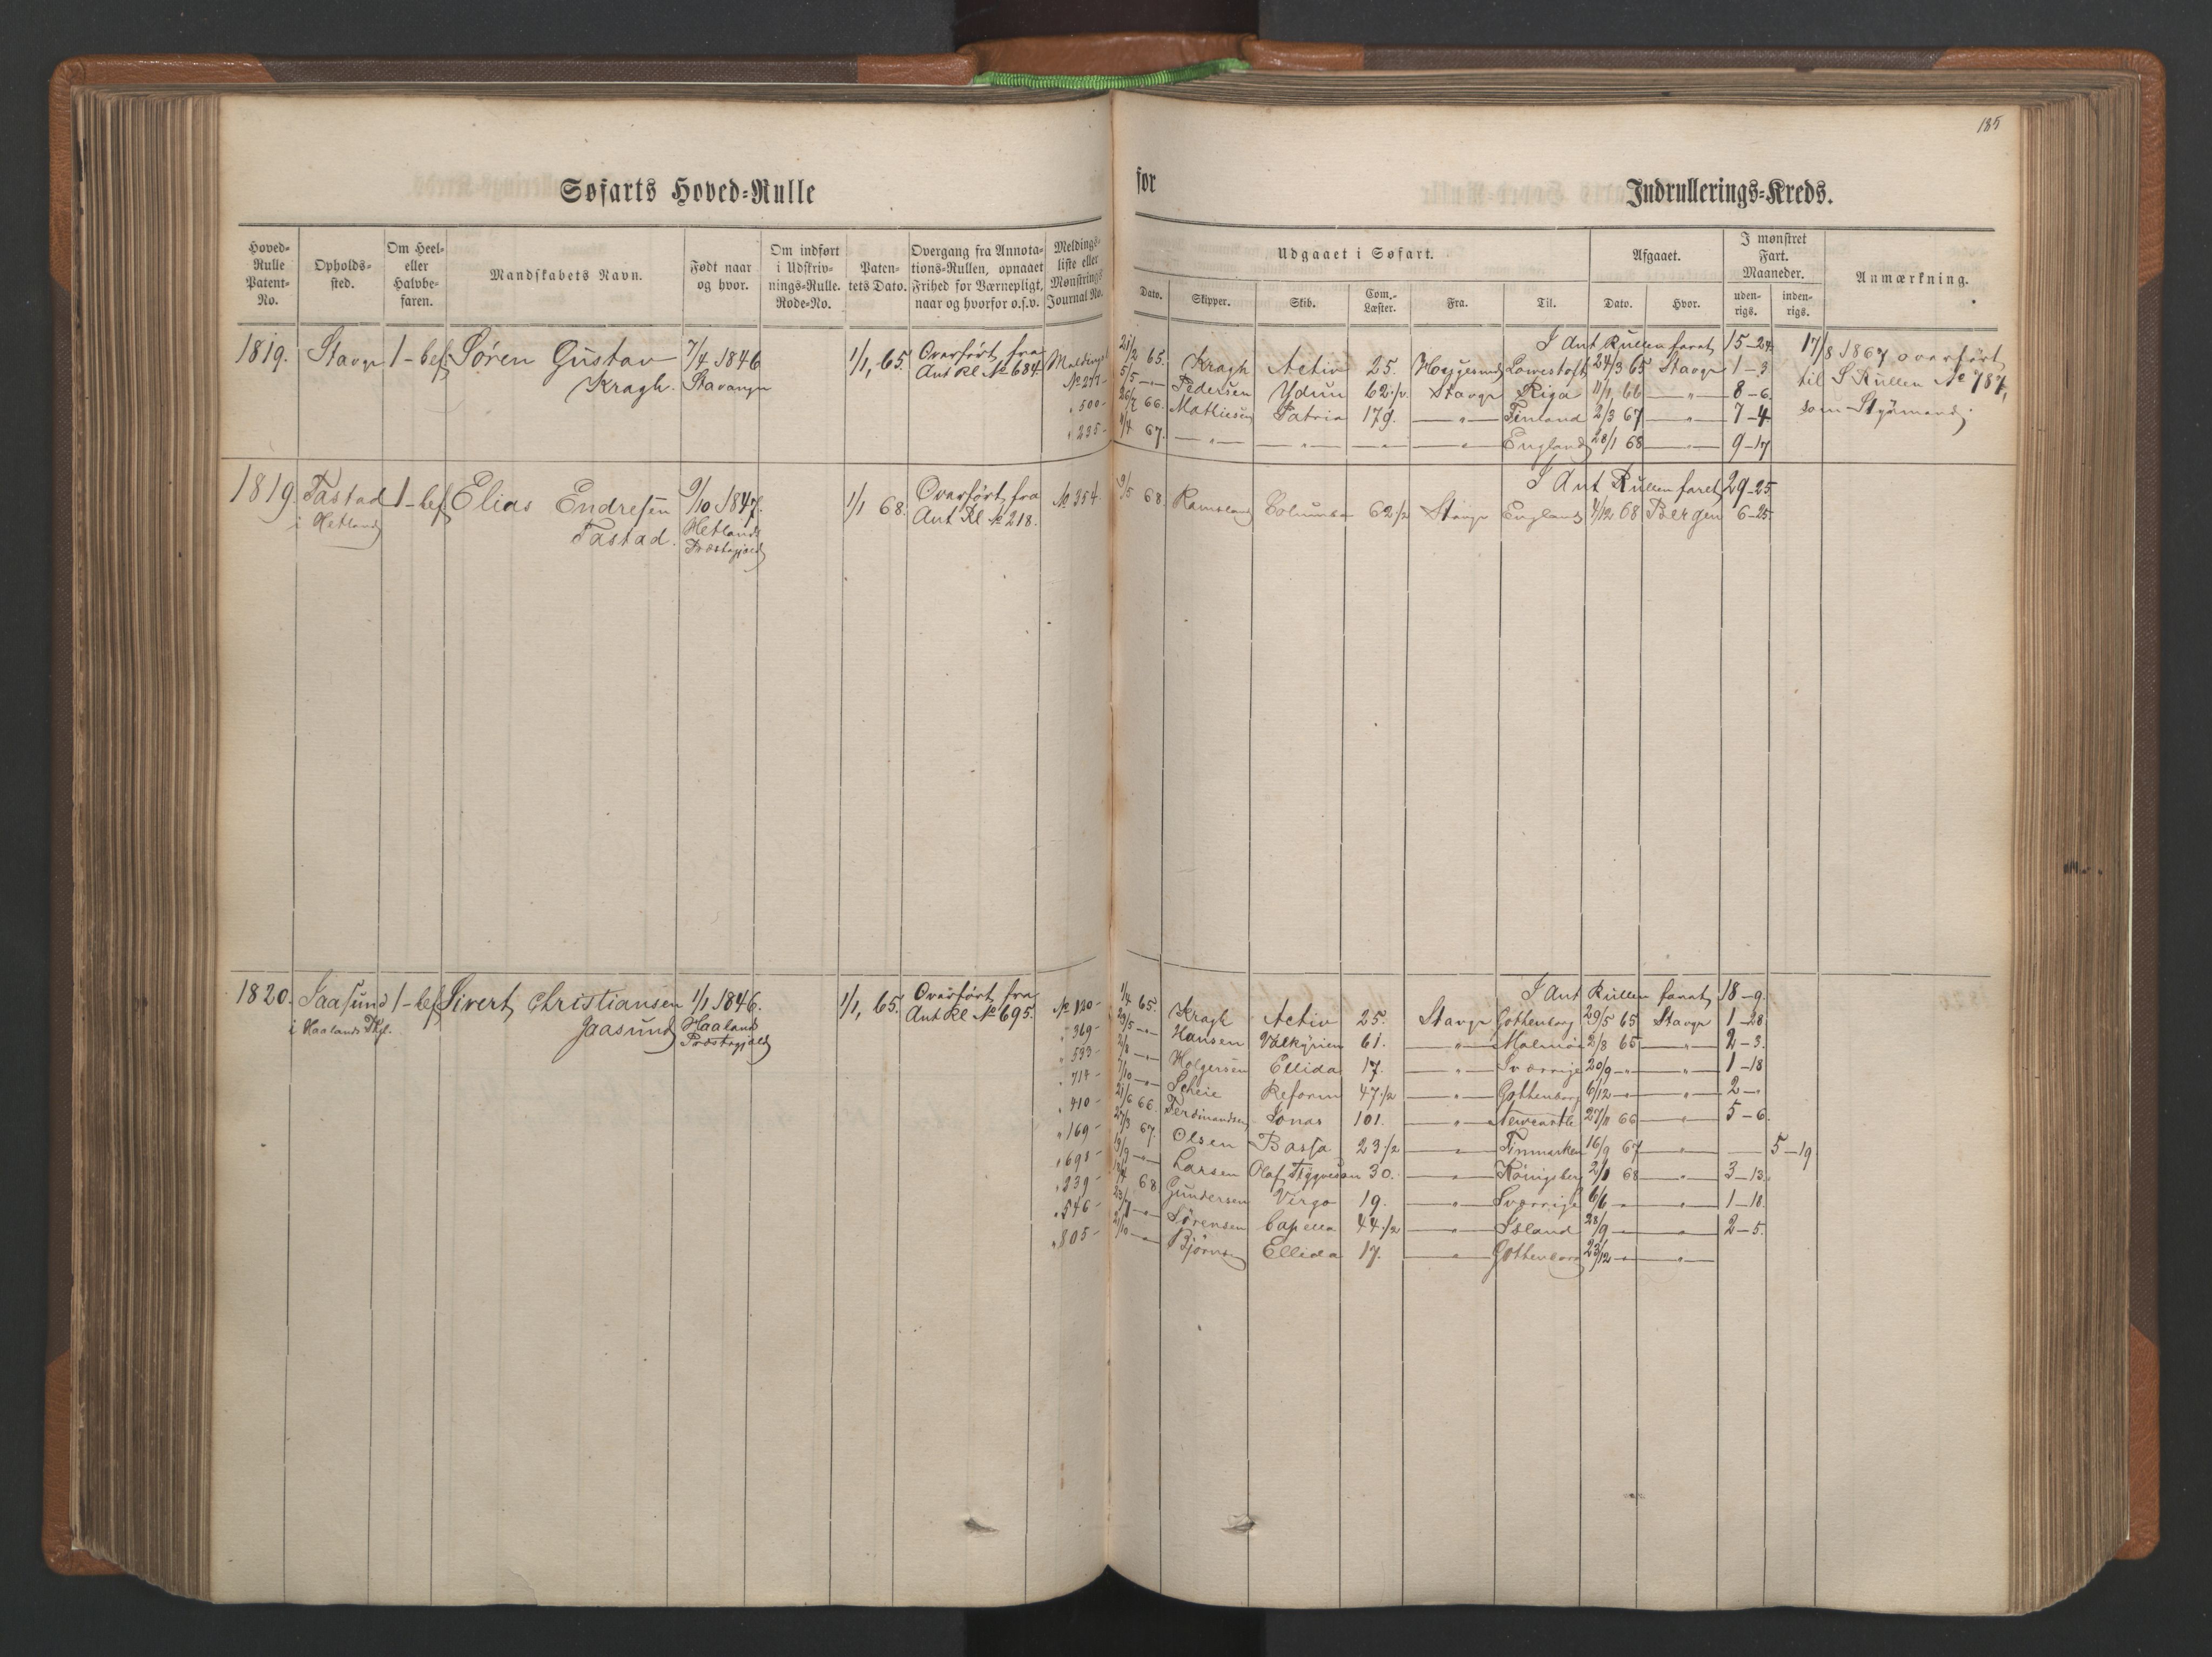 185
Søfarts Hoved-Rulle
for
Indrullerings-Kreds.
Hoved-Rulle Patent-No.
Opholds-sted.
Om Heel- eller Halvbe-faren.
Mandskabets Navn.
Født naar og hvor.
Om indført i Udskriv-nings-Rulle. Rode-No.
Paten-tets Dato.
Overgang fra Annota-tions-Rullen, opnaaet Frihed for Værnepligt, naar og hvorfor o.s.v.
Meldings-liste eller Mønstrings Journal No.
Udgaaet i Søfart.
Afgaaet.
I mønstret Fart. Maaneder.
Anmærkning.
Dato.
Skipper.
Skib.
Com.-Læster.
Fra.
Til.
Dato.
Hvor.
uden-rigs.
inden-rigs.
1819. Stavgr 1-bef. Søren Gustav Kragh. 7/4 1846 Stavanger 1/1, 65. Overført fra Ant Rl. No 684.
I Ant Rullen faret 15-24
21/2 65. Kragh Activ 25. Haugesund Lowestoft 24/3 65 Stavgr 1-3
No 277- 5/5 -"- Pedersen Ydun 62 1/2. Stavgr Riga 11/1, 66 -"- 8-6.
" 500- 66. Mathiesen Patria 179. -"- Finland 2/3 67 -"- 7-4
" 235- 67. -"- -"- -"- -"- England 28/1 68 -"- 9-17
17/8 1867 overført
til S Rullen No 787,
som Styrmand.
1819. Tastad i Hetland 1-bef. Elias Endresen Tastad. 9/10 1847. Hetlands Præstegjæld 1/1 68. Overført fra Ant Rl No 218.
I Ant Rullen faret 29-25
No 354 9/5 68. Ramsland Columba 62 1/2 Stavgr England 68 Bergen 6-25
1820. Jaasund i Haalands Thgl. 1-bef. Sivert Christiansen Jaasund 1/1 1846. Haaland Præstegjæld 1/1, 65. Overført fra Ant Rl No 695.
I Ant Rullen faret 18-9.
No 120- 1/4 65. Kragh Activ 25. Stavgr Gothenborg 29/5 65 Stavgr 1-28
" 369- 29/5 -"- Hansen Valkyrien 61. -"- Malmöe 2/8 65 -"- 2-3.
" 533- 2/8 -"- Holgersen Ellida 17. -"- Sverrige 20/9 -"- -"- 1-18
" 714- 7/10 -"- Scheie Reform 47 1/2 -"- Gothenborg 6/12 -"- -"- 2-"
" 410- 21/6 66. Ferdinandsen Jonas 101. -"- Newcastle 27/11 66 -"- 5-6.
" 169- 27/3 67. Olsen Bassa 23 1/2 -"- Finmarken 16/9 67 -"- - 5-19
" 698- 19/9 -"- Larsen Olaf Trygvesen 30. -"- Königsberg 68 -"- 3-13.
" 239- 68 Gundersen Virgo 19. -"- Sverrige 6/6 -"- -"- 1-18.
" 546- -"- Sørensen Capella 44 1/2 -"- Island 28/9 -"- -"- 2-5.
" 805- 2/10 -"- Bjørnsen Ellida 17. -"- Gothenborg 23/12 -"- -"-